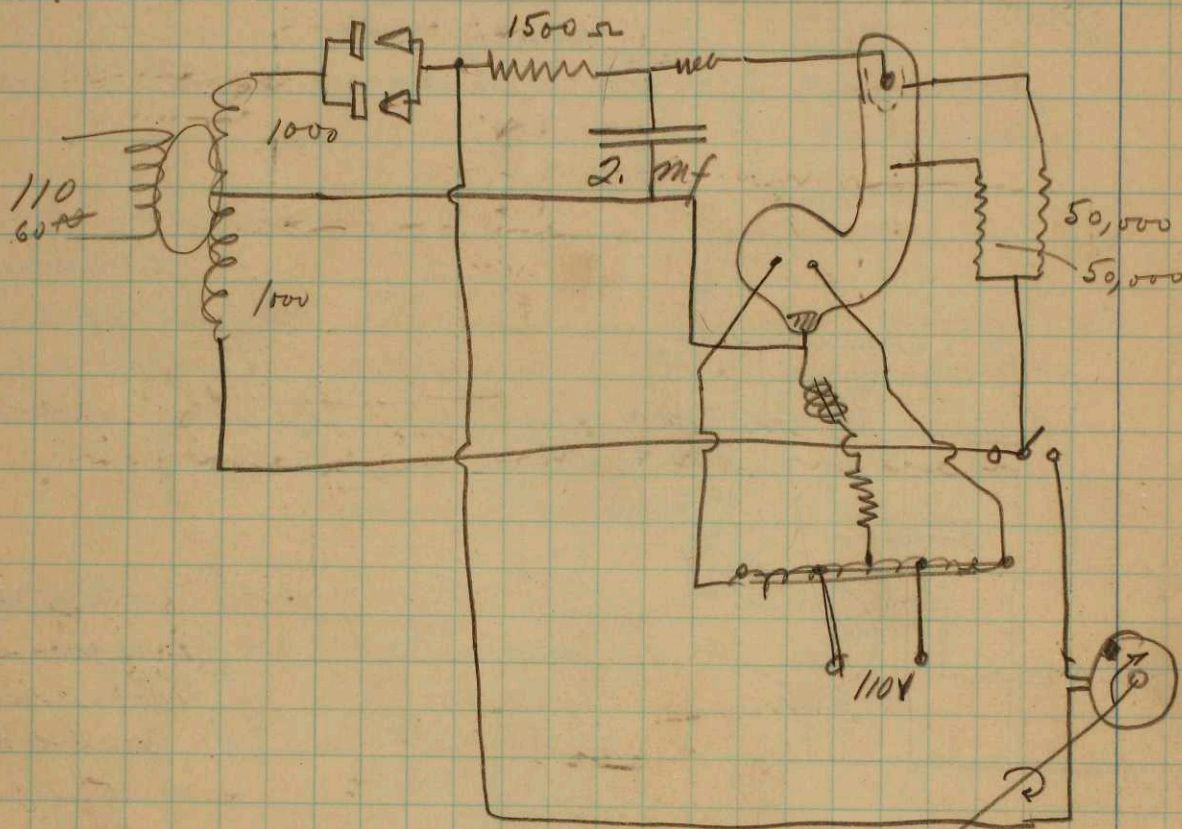 1500 Ω
1000
110
60
2. mf
1000
50,000
50,000
110V